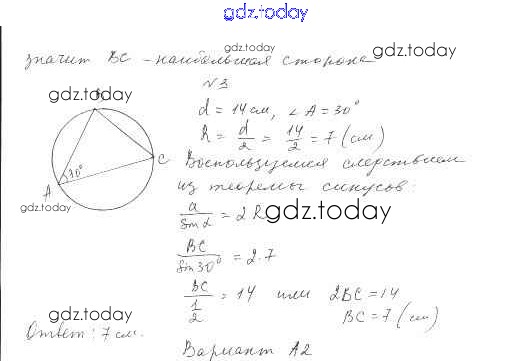 gdz.today
gdz.today
значит BC - наибольшая сторона
gdz.today
№3
gdz.today
B
d = 14 см, ∠A = 30°
R = d/2 = 14/2 = 7 (см)
C
30°
A
Воспользуемся следствием
из теоремы синусов:
gdz.today
a/sin α = 2R
gdz.today
BC/sin 30° = 2·7
BC/(1/2) = 14 или 2BC = 14
gdz.today
BC = 7 (см)
gdz.today
Ответ: 7 см.
Вариант А2